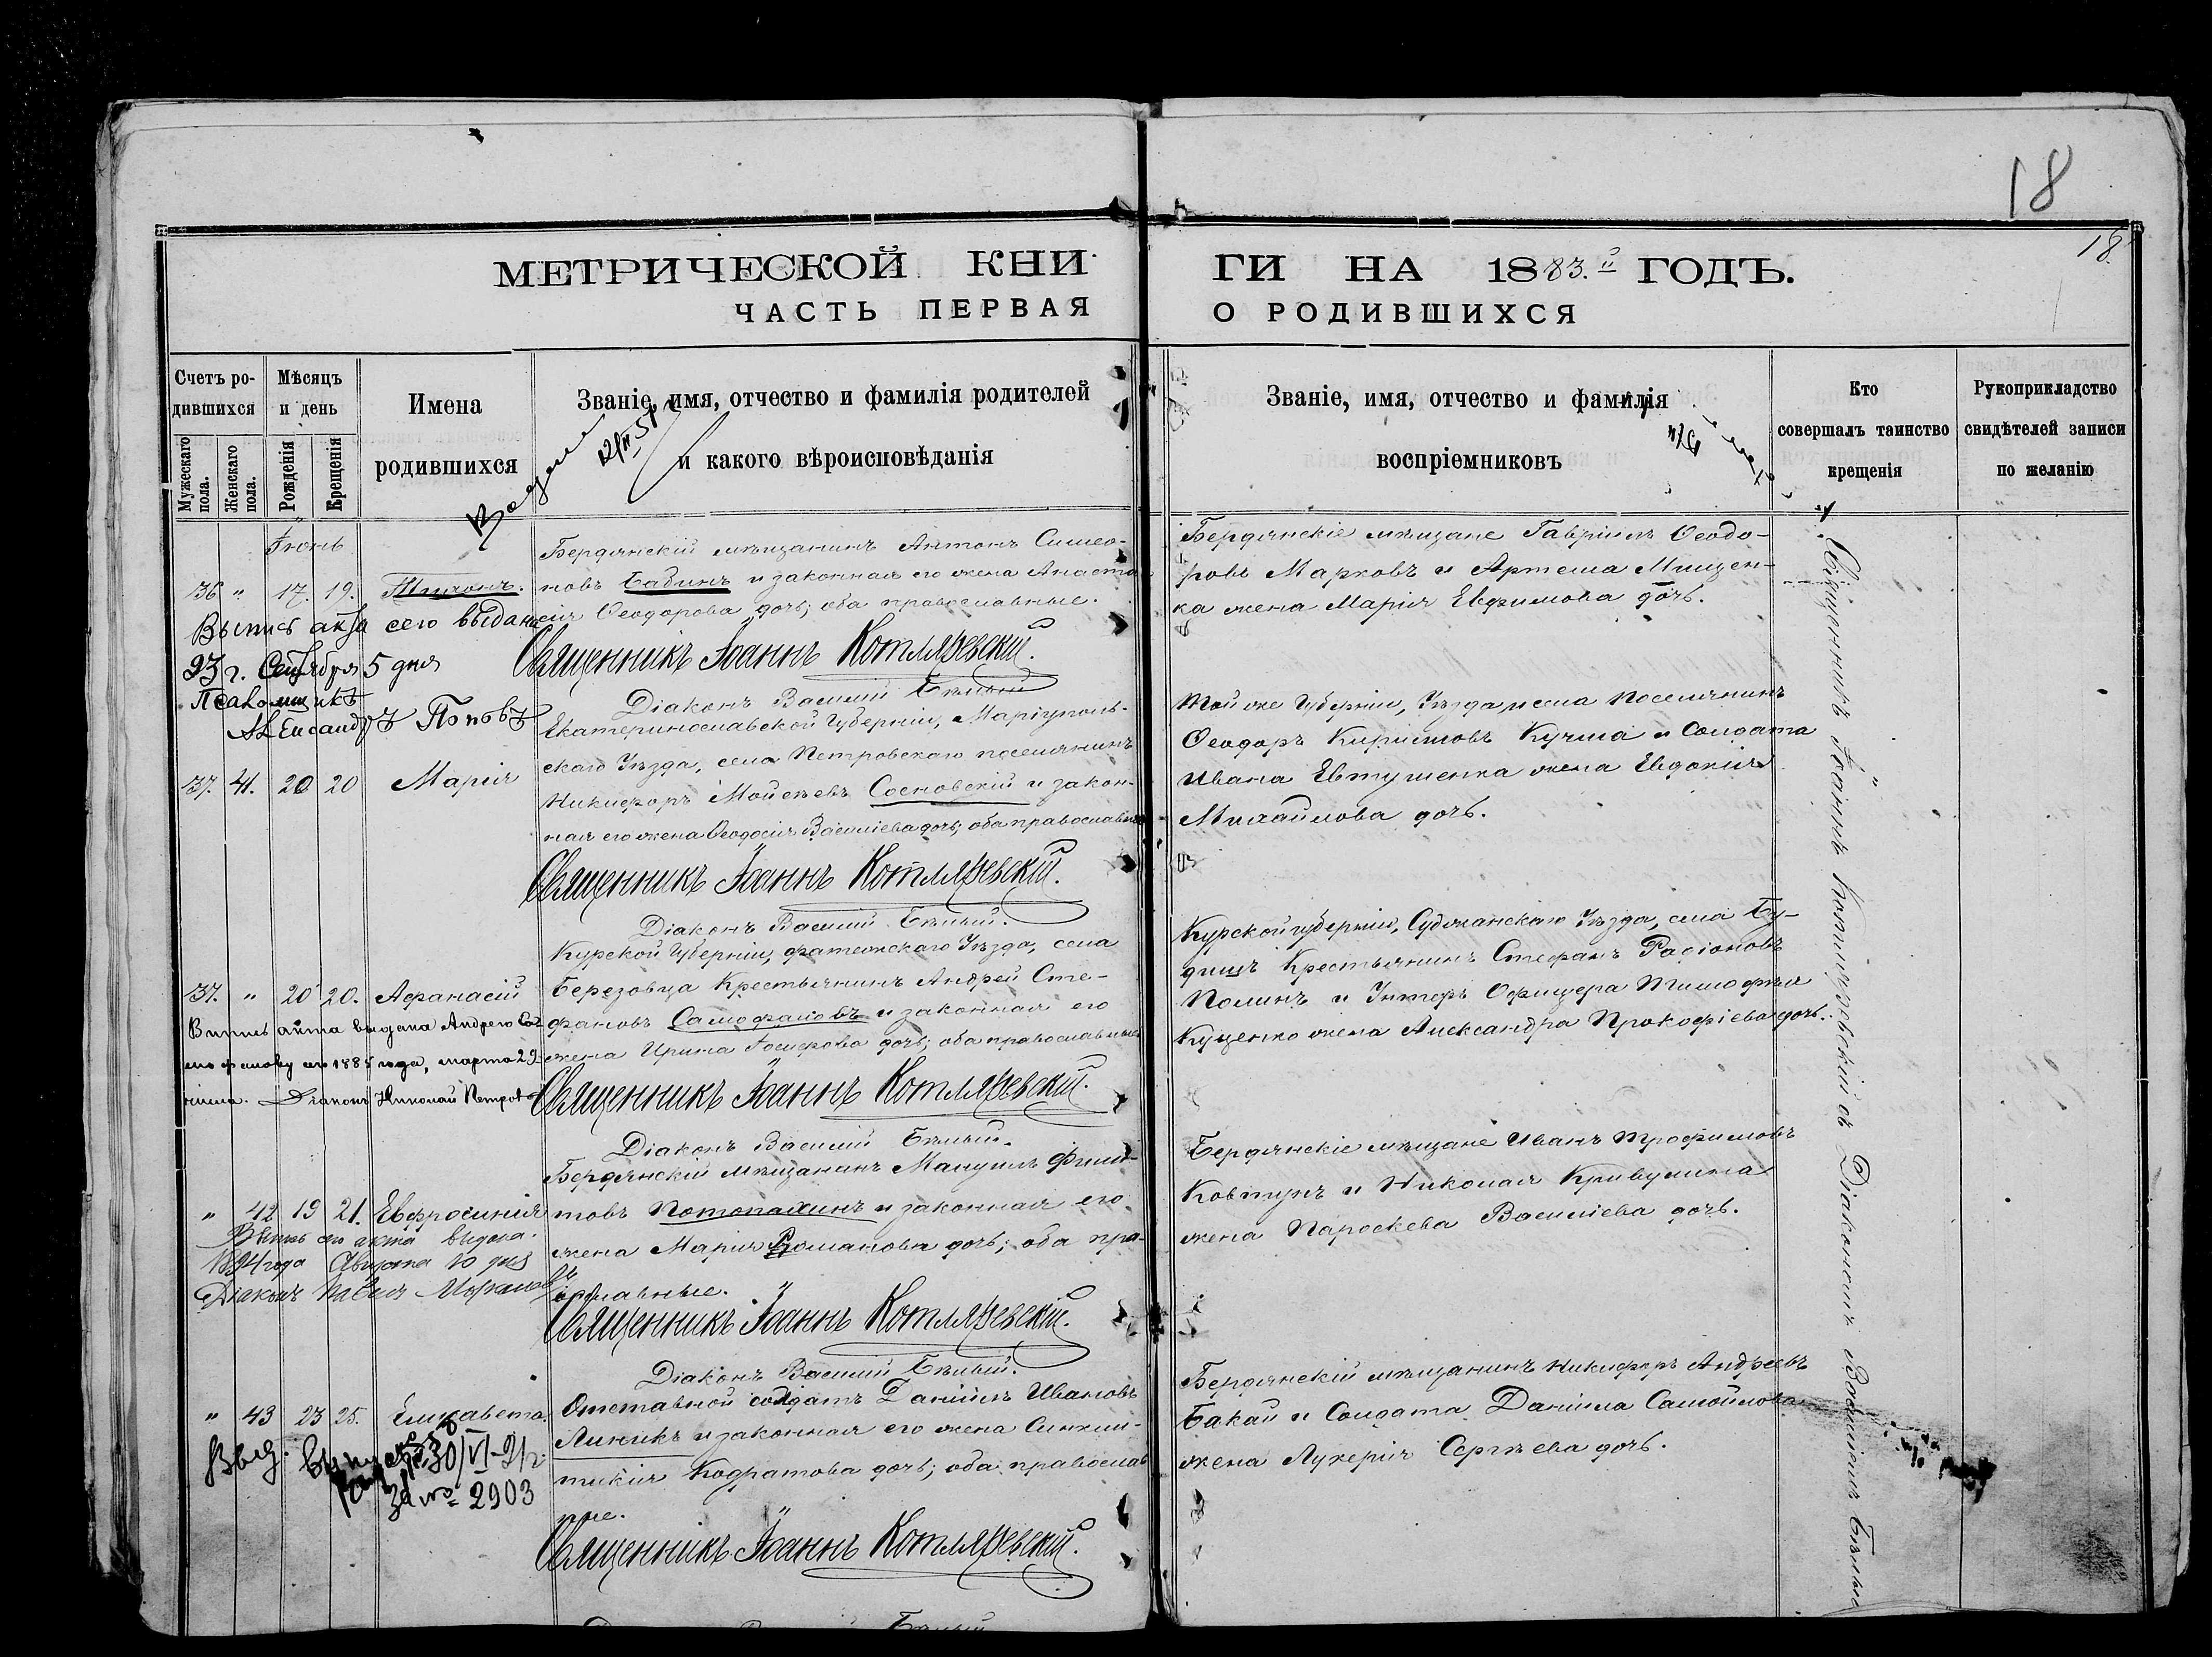 18
18.
МЕТРИЧЕСКОЙ КНИ
ГИ НА 1883.й ГОДЪ.
ЧАСТЬ ПЕРВАЯ
О РОДИВШИХСЯ
Счетъ ро-
дившихся
Мужескаго пола.
Женскаго пола.
Мѣсяцъ
и день
Рожденія
Крещенія
Имена
родившихся
Званіе, имя, отчество и фамилія родителей
и какого вѣроисповѣданія
Званіе, имя, отчество и фамилія
воспріемниковъ
Кто
совершалъ таинство
крещенія
Рукоприкладство
свидѣтелей записи
по желанію
Іюнь
36 " 17. 19. Тихонъ.
Бердянскій мѣщанинъ Антонъ Симео-
новъ Бабинъ и законная его жена Анаста
сія Ѳеодорова дочь; оба православные.
Священникъ Іоаннъ Котляревскій.
Діаконъ Василій Бѣлый
Выпись акта сего выдана
93 г. Сентября 5 дня
Псаломщикъ
Александръ Поповъ
Бердянскіе мѣщане Гавріилъ Ѳеодо-
ровъ Марковъ и Артема Мищен-
ка жена Марія Евфимова дочь.
37. 41. 20 20 Марія
Екатеринославской Губерніи, Маріуполь-
скаго Уѣзда, села Петровскаго поселянинъ
Никифоръ Моисѣевъ Сосновскій и закон-
ная его жена Ѳеодосія Василіева дочь; оба православные
Священникъ Іоаннъ Котляревскій.
Діаконъ Василій Бѣлый.
Той же Губерніи, Уѣзда и села поселянинъ
Ѳеодоръ Кириловъ Кучма и Солдата
Ивана Евтушенка жена Евдокія
Михайлова дочь.
37. " 20 20. Афанасій
Курской Губерніи, Фатежскаго Уѣзда, села
Березовца Крестьянинъ Андрей Сте-
фановъ Самофаловъ и законная его
жена Ирина дочь; оба православные
Священникъ Іоаннъ Котляревскій.
Діаконъ Василій Бѣлый.
Выпись акта выдана Андрею Са-
мофалову 1885 года, марта 29
числа. Діаконъ Николай Петров
Курской губерніи, Суджанскаго Уѣзда, села Бу-
дищъ Крестьянинъ Стефанъ Радіоновъ
Полинъ и Унтеръ Офицера Тимофея
Куценко жена Александра Прокофіева дочь.
" 42 19 21. Евфросинія
Бердянскій мѣщанинъ Мануилъ Филип-
повъ Потопахинъ и законная его
жена Марія Романова дочь; оба пра-
вославные.
Священникъ Іоаннъ Котляревскій.
Діаконъ Василій Бѣлый.
Выпись сего акта выдана.
1894 года Августа 10 дня
Діаконъ Павелъ
Бердянскіе мѣщане Иванъ Трофимовъ
Ковтунъ и Николая Кривулина
жена Параскева Василіева дочь.
" 43 23 25. Елисавета
Отставной солдатъ Даніилъ Ивановъ
Линикъ и законная его жена Синкли-
тикія Кодратова дочь; оба православ
ные.
Священникъ Іоаннъ Котляревскій.
Выд. 30/VI-21 г.
за № 2903
Бердянскій мѣщанинъ Никифоръ Андреевъ
Бакай и Солдата Даніила Самойлова
жена Лукерія Сергѣева дочь.
Священникъ Іоаннъ Котляревскій съ Діакономъ Василіемъ Бѣлымъ